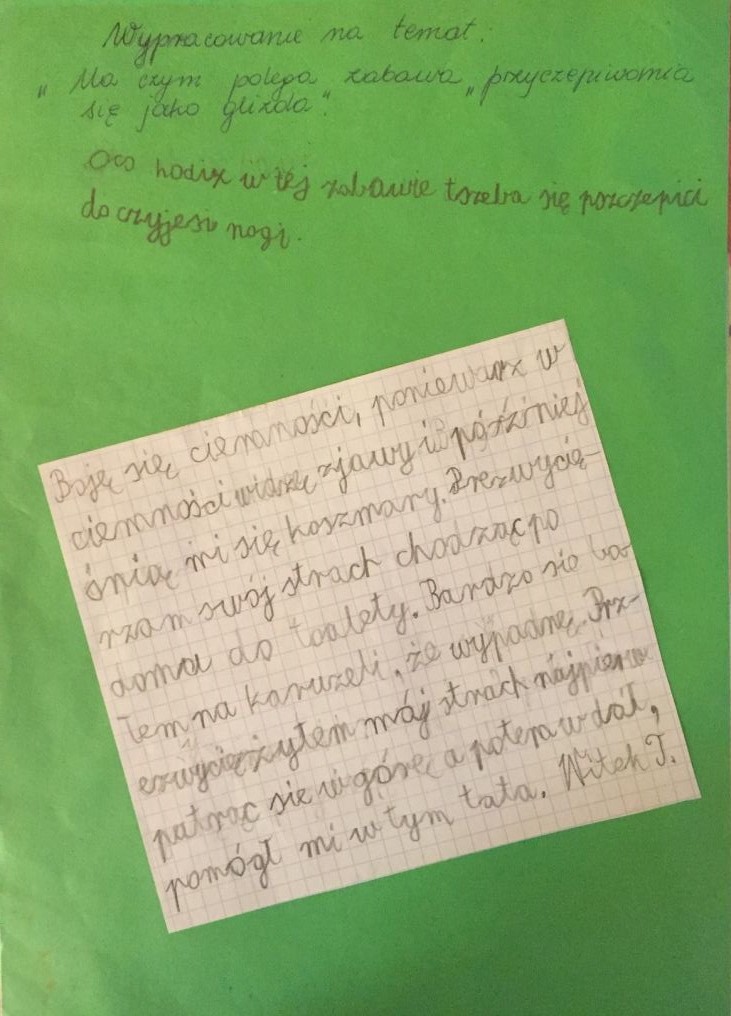 Wypracowanie na temat:
„Na czym polega zabawa „przyczepiwania
się jako glizda".
Oco hodix w tej zabawie tszeba się pszczepici
do czyjesi nogi.
Boję się ciemności, poniewarz w
ciemności widzę zjawy i późiniej
śnią mi się koszmary. Prezwycię-
rzam swój strach chodząc po
domu do toalety. Bardzo sie ba-
łem na karuzeli, że wypadnę. Prz-
ezwyciężyłem mój strach najpierw
patrząc sie w górę a potem w dół,
pomógł mi w tym tata. Witek T.